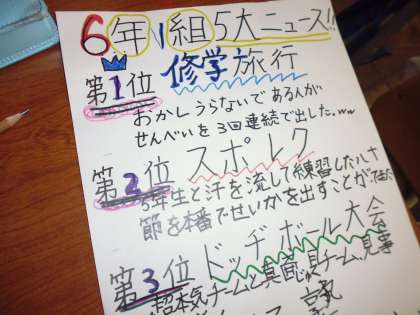 6年1組5大ニュース!!
第1位 修学旅行
おかしうらないであるんが
せんべいを3回連続で出した。ww
第2位 スポレク
5年生と汗を流して練習したハナ
節を本番でせいかを出すことができた
第3位 ドッヂボール大会
超本気チームと真面目チーム、見事